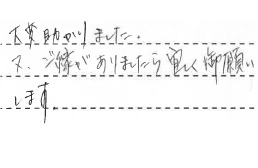 大変助かりました。
又、ご縁がありましたら宜しく御願い
します。